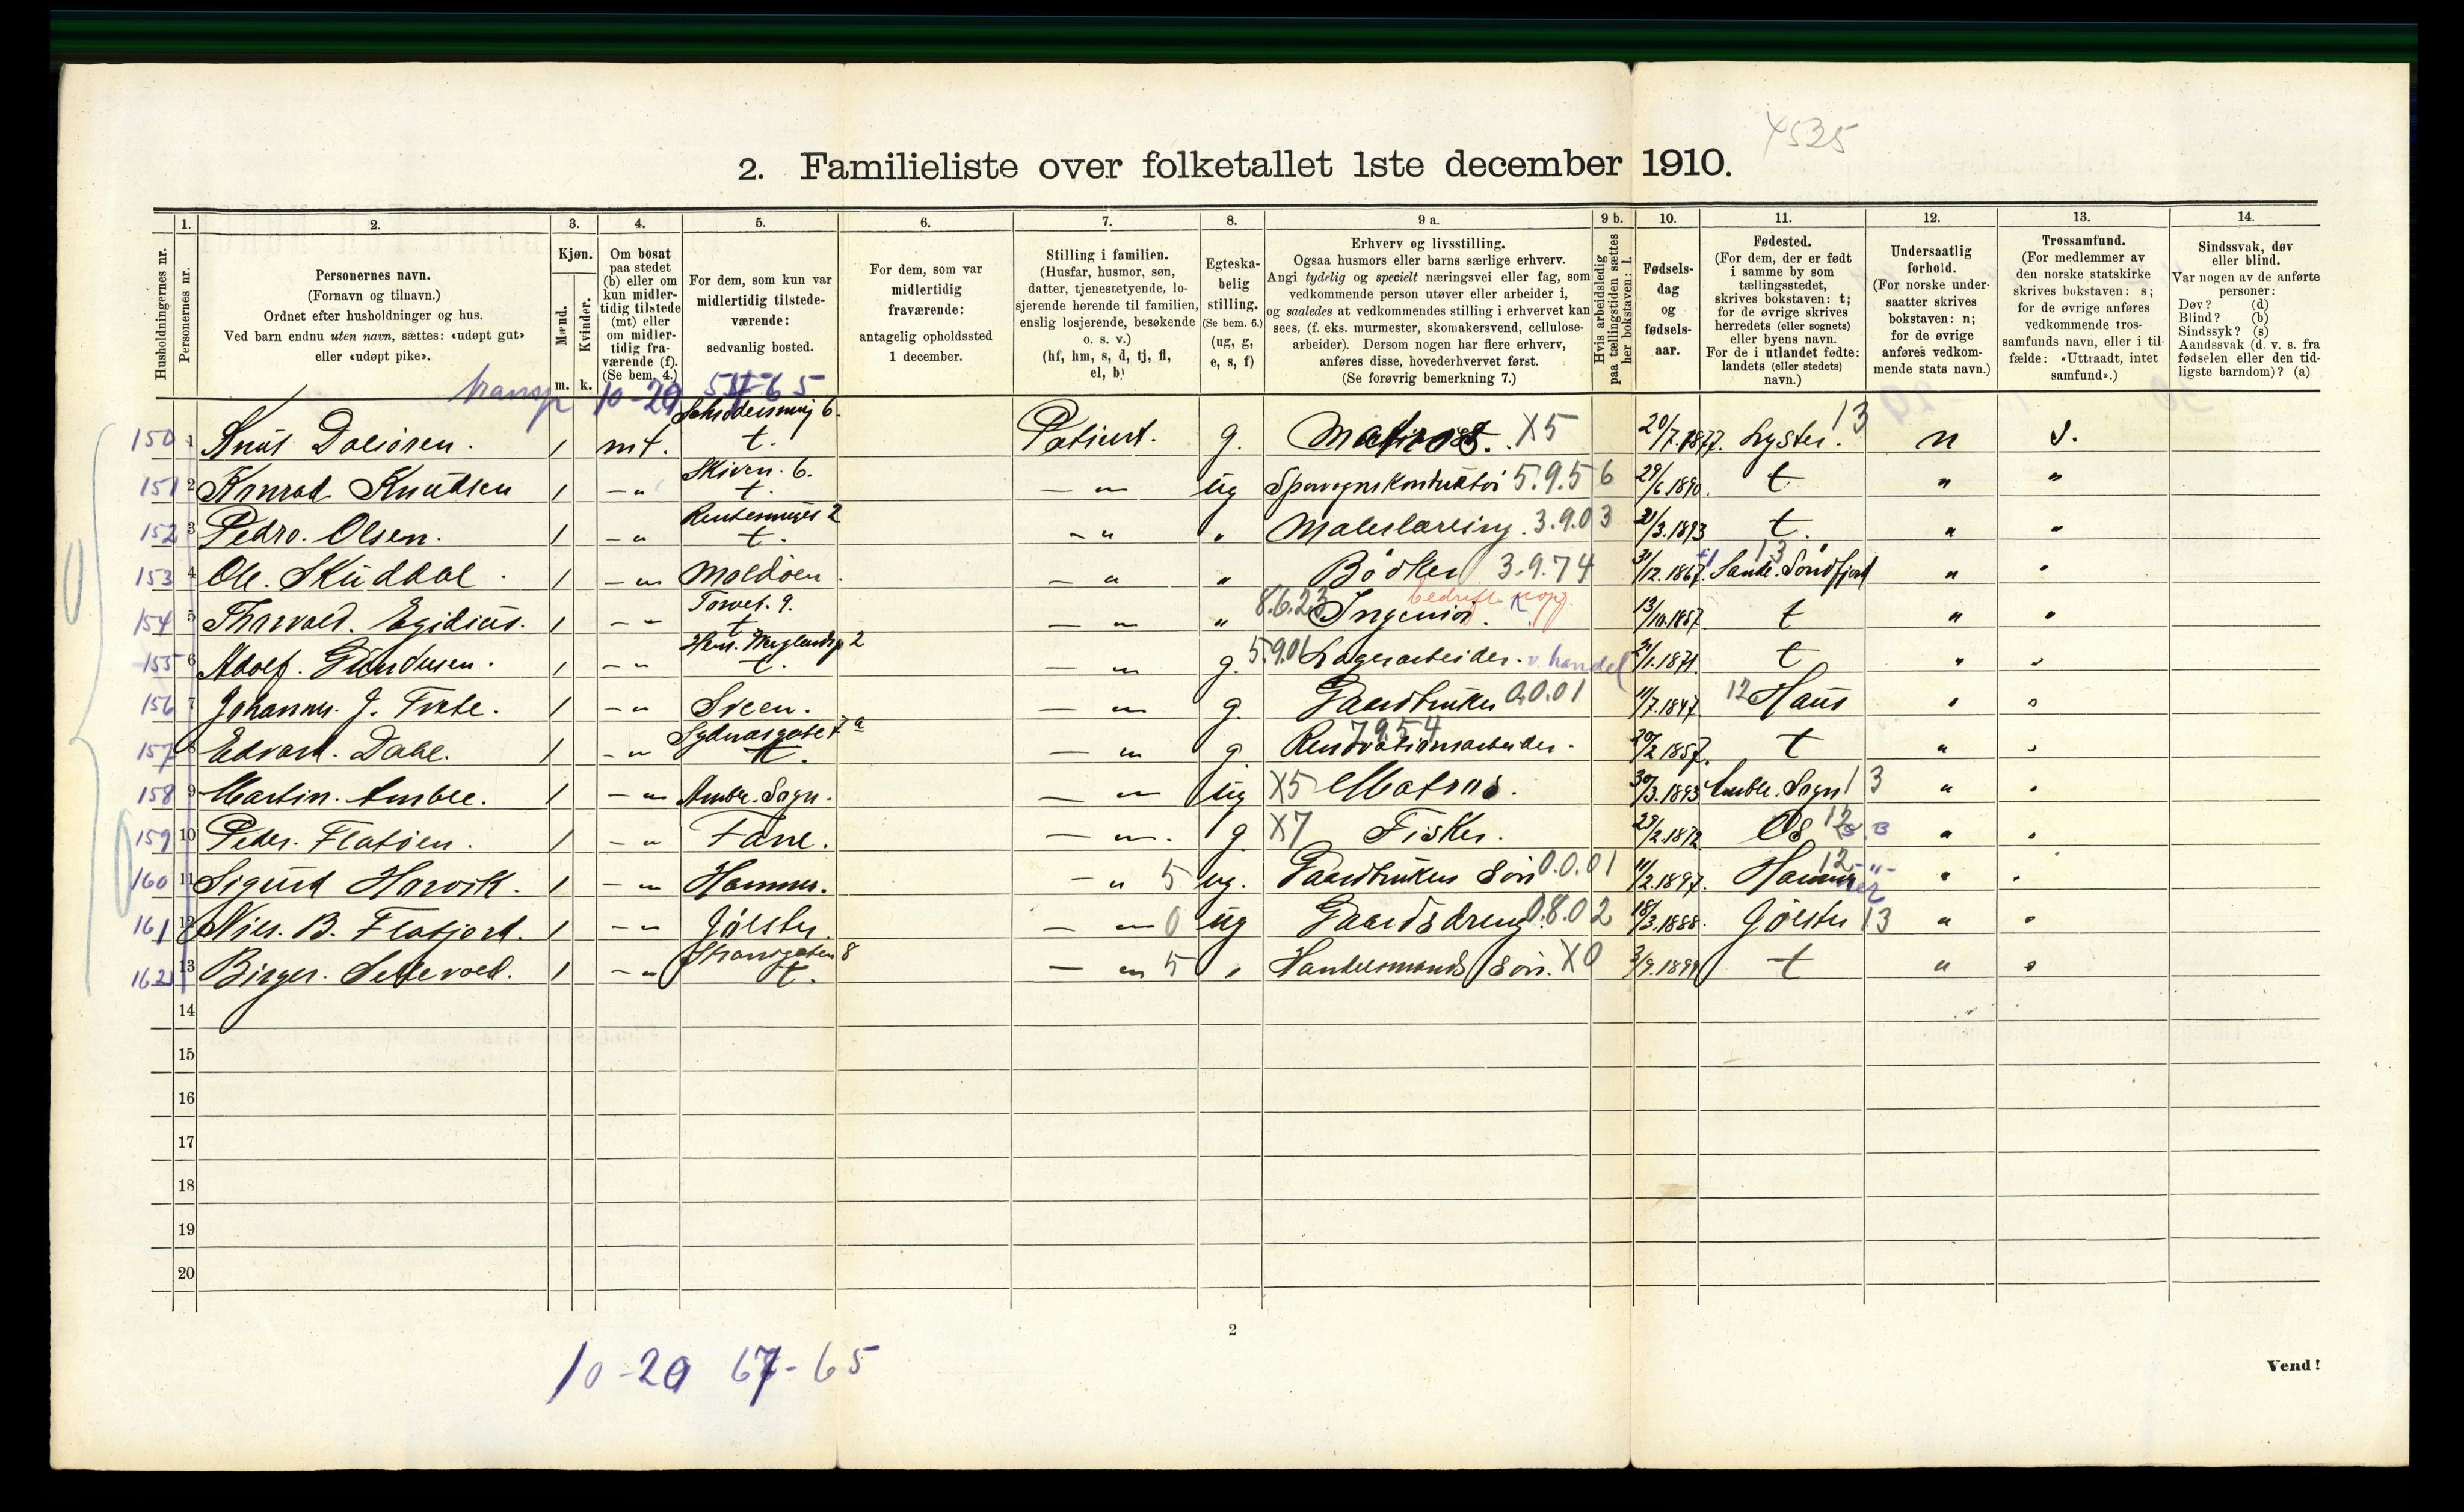 4535
2. Familieliste over folketallet 1ste december 1910.
Husholdningernes nr.
1. Personernes nr.
2. Personernes navn.
(Fornavn og tilnavn.)
Ordnet efter husholdninger og hus.
Ved barn endnu uten navn, sættes: «udøpt gut»
eller «udøpt pike».
3. Kjøn.
Mænd. m.
Kvinder. k.
4. Om bosat
paa stedet
(b) eller om
kun midler-
tidig tilstede
(mt) eller
om midler-
tidig fra-
værende (f).
(Se bem. 4.)
5. For dem, som kun var
midlertidig tilstede-
værende:
sedvanlig bosted.
6. For dem, som var
midlertidig
fraværende:
antagelig opholdssted
1 december.
7. Stilling i familien.
(Husfar, husmor, søn,
datter, tjenestetyende, lo-
sjerende hørende til familien,
enslig losjerende, besøkende
o. s. v.)
(hf, hm, s, d, tj, fl,
el, b)
8. Egteska-
belig
stilling.
(Se bem. 6.)
(ug, g,
e, s, f)
9 a. Erhverv og livsstilling.
Ogsaa husmors eller barns særlige erhverv.
Angi tydelig og specielt næringsvei eller fag, som
vedkommende person utøver eller arbeider i,
og saaledes at vedkommendes stilling i erhvervet kan
sees, (f. eks. murmester, skomakersvend, cellulose-
arbeider). Dersom nogen har flere erhverv,
anføres disse, hovederhvervet først.
(Se forøvrig bemerkning 7.)
9 b. Hvis arbeidsledig
paa tællingstiden sættes
her bokstaven: l.
10. Fødsels-
dag
og
fødsels-
aar.
11. Fødested.
(For dem, der er født
i samme by som
tællingsstedet,
skrives bokstaven: t;
for de øvrige skrives
herredets (eller sognets)
eller byens navn.
For de i utlandet fødte:
landets (eller stedets)
navn.)
12. Undersaatlig
forhold.
(For norske under-
saatter skrives
bokstaven: n;
for de øvrige
anføres vedkom-
mende stats navn.)
13. Trossamfund.
(For medlemmer av
den norske statskirke
skrives bokstaven: s;
for de øvrige anføres
vedkommende tros-
samfunds navn, eller i til-
fælde: «Uttraadt, intet
samfund».)
14. Sindssvak, døv
eller blind.
Var nogen av de anførte
personer:
Døv? (d)
Blind? (b)
Sindssyk? (s)
Aandssvak (d. v. s. fra
fødselen eller den tid-
ligste barndom)? (a)
transp 10-20 -65
150 1 Knut Dalsøren. 1 mt. 6. t. Patient. g. Matros. X5 20/7.1877. Lyster. 13 n s.
151 2 Konrad Knudsen 1 - " Skiven. 6. t. - " ug Sporvognskonduktør 5.9.5 6 29/6.1890. t " "
152 3 Pedro. Olsen. 1 - " 2 t. - " " Malerlærling. 3.9.0 3 /3.1893 t. " "
153 4 Ole. Skuddal. 1 - " Moldøen. - " " Bødker 3.9.74 31/12.1867. Sande. Søndfjord 13 " "
154 5 Thorvald. Egidius. 1 - " Torvet. 9. t. - " " 8.6.23 Ingeniør. K 13/10.1857. t " "
155 6 Adolf. Gundersen. 1 - " Henr. Wergelandsg 2 t. - " g. 5.9.01 Lagerarbeider. v. handel /1.1871. t " "
156 7 Johannes. J. Tvete. 1 - " Sveen. - " g. Gaardbruker 0.0.01 11/7.1847 12 Haus " "
157 8 Edvard. Dahl. 1 - " Sydnæsgate 7 a t. - " g. Renovationsarbeider. 7954 20/2.1857. t " "
158 9 Martin. Amble. 1 - " Amble. Sogn. - " ug X5 Matros. 30/3.1893 Amble. Sogn 13 " "
159 10 Peder. Flatøen. 1 - " Fane. - " g. X7 Fisker. 23/2.1872 Os 12 B " "
160 11 Sigurd Horvik. 1 - " Hammer. - " 5 ug. Gaardbrukers Søn 0.0.01 11/2.1897. Hammer 12 -"- " "
161 12 Nils. B. Flatjord. 1 - " Jølster. - " 0 ug Gaardsdreng 0.8.02 18/3.1888. Jølster 13 " "
162 13 Birger. Sellevold. 1 - " Strandgaten 8 t. - " 5 " Handelsmands Søn. X0 3/9.1899 t " "
14
15
16
17
18
19
20
2
10-20 67-65
Vend!